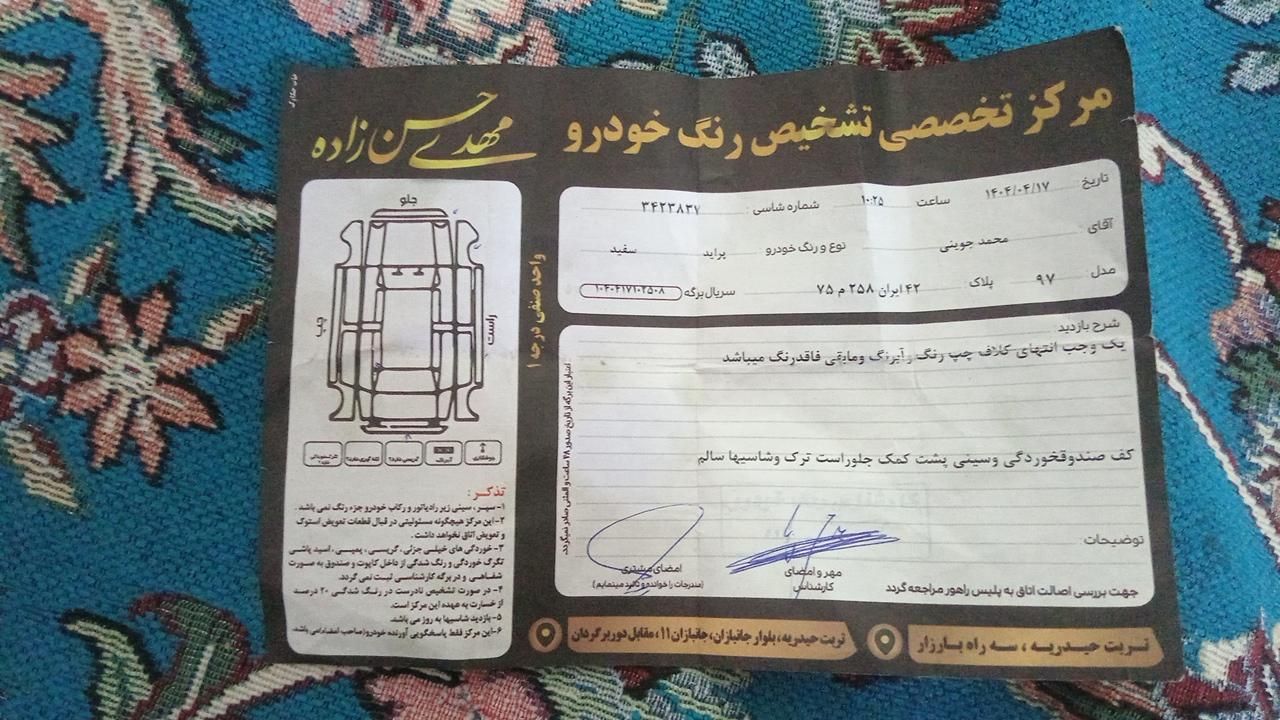 مرکز تخصصی تشخیص رنگ خودرو
مهدی حسن زاده
تاریخ ۱۴۰۴/۰۴/۱۷ ساعت ۱۰:۲۵ شماره شاسی : ۳۴۲۳۸۳۷
آقای : محمد جوینی نوع و رنگ خودرو پراید سفید
مدل : ۹۷ پلاک ۴۲ ایران ۲۵۸ م ۷۵ سریال برگه ۱۰۴۰۴۱۷۱۰۲۵۰۸
شرح بازدید
یک وجب انتهای کلاف چپ رنگ وآبرنگ ومابقی فاقدرنگ میباشد
کف صندوقخوردگی وسینی پشت کمک جلوراست ترک وشاسیها سالم
توضیحات
مهر و امضای
کارشناس
امضای مشتری
(مندرجات را خوانده و تائید مینمایم)
جهت بررسی اصالت اتاق به پلیس راهور مراجعه گردد
اعتبار این برگه از تاریخ صدور ۴۸ ساعت و المثنی صادر نمیگردد.
واحد صنفی درجه ۱
جلو
چپ
راست
آبرنگ
تذکر :
۱- سپر ، سینی زیر رادیاتور و رکاب خودرو جزء رنگ نمی باشد .
۲- این مرکز هیچگونه مسئولیتی در قبال قطعات تعویض استوک
و تعویض اتاق نخواهد داشت .
۳- خوردگی های خیلی جزئی، گریسی ، پمپی ، اسید پاشی
تگرگ خوردگی و رنگ شدگی از داخل کاپوت و صندوق به صورت
شفاهی و در برگه کارشناسی ثبت نمی گردد.
۴- در صورت تشخیص نادرست در رنگ شدگی ۲۰ درصد
از خسارت به عهده این مرکز است.
۵- بازدید شاسیها به روز می باشد.
۶- این مرکز فقط پاسخگویی آورنده خودرو (صاحب امضاء) می باشد.
تربت حیدریه ، سه راه بارزار
تربت حیدریه، بلوار جانبازان، جانبازان ۱۱، مقابل دوربرگردان